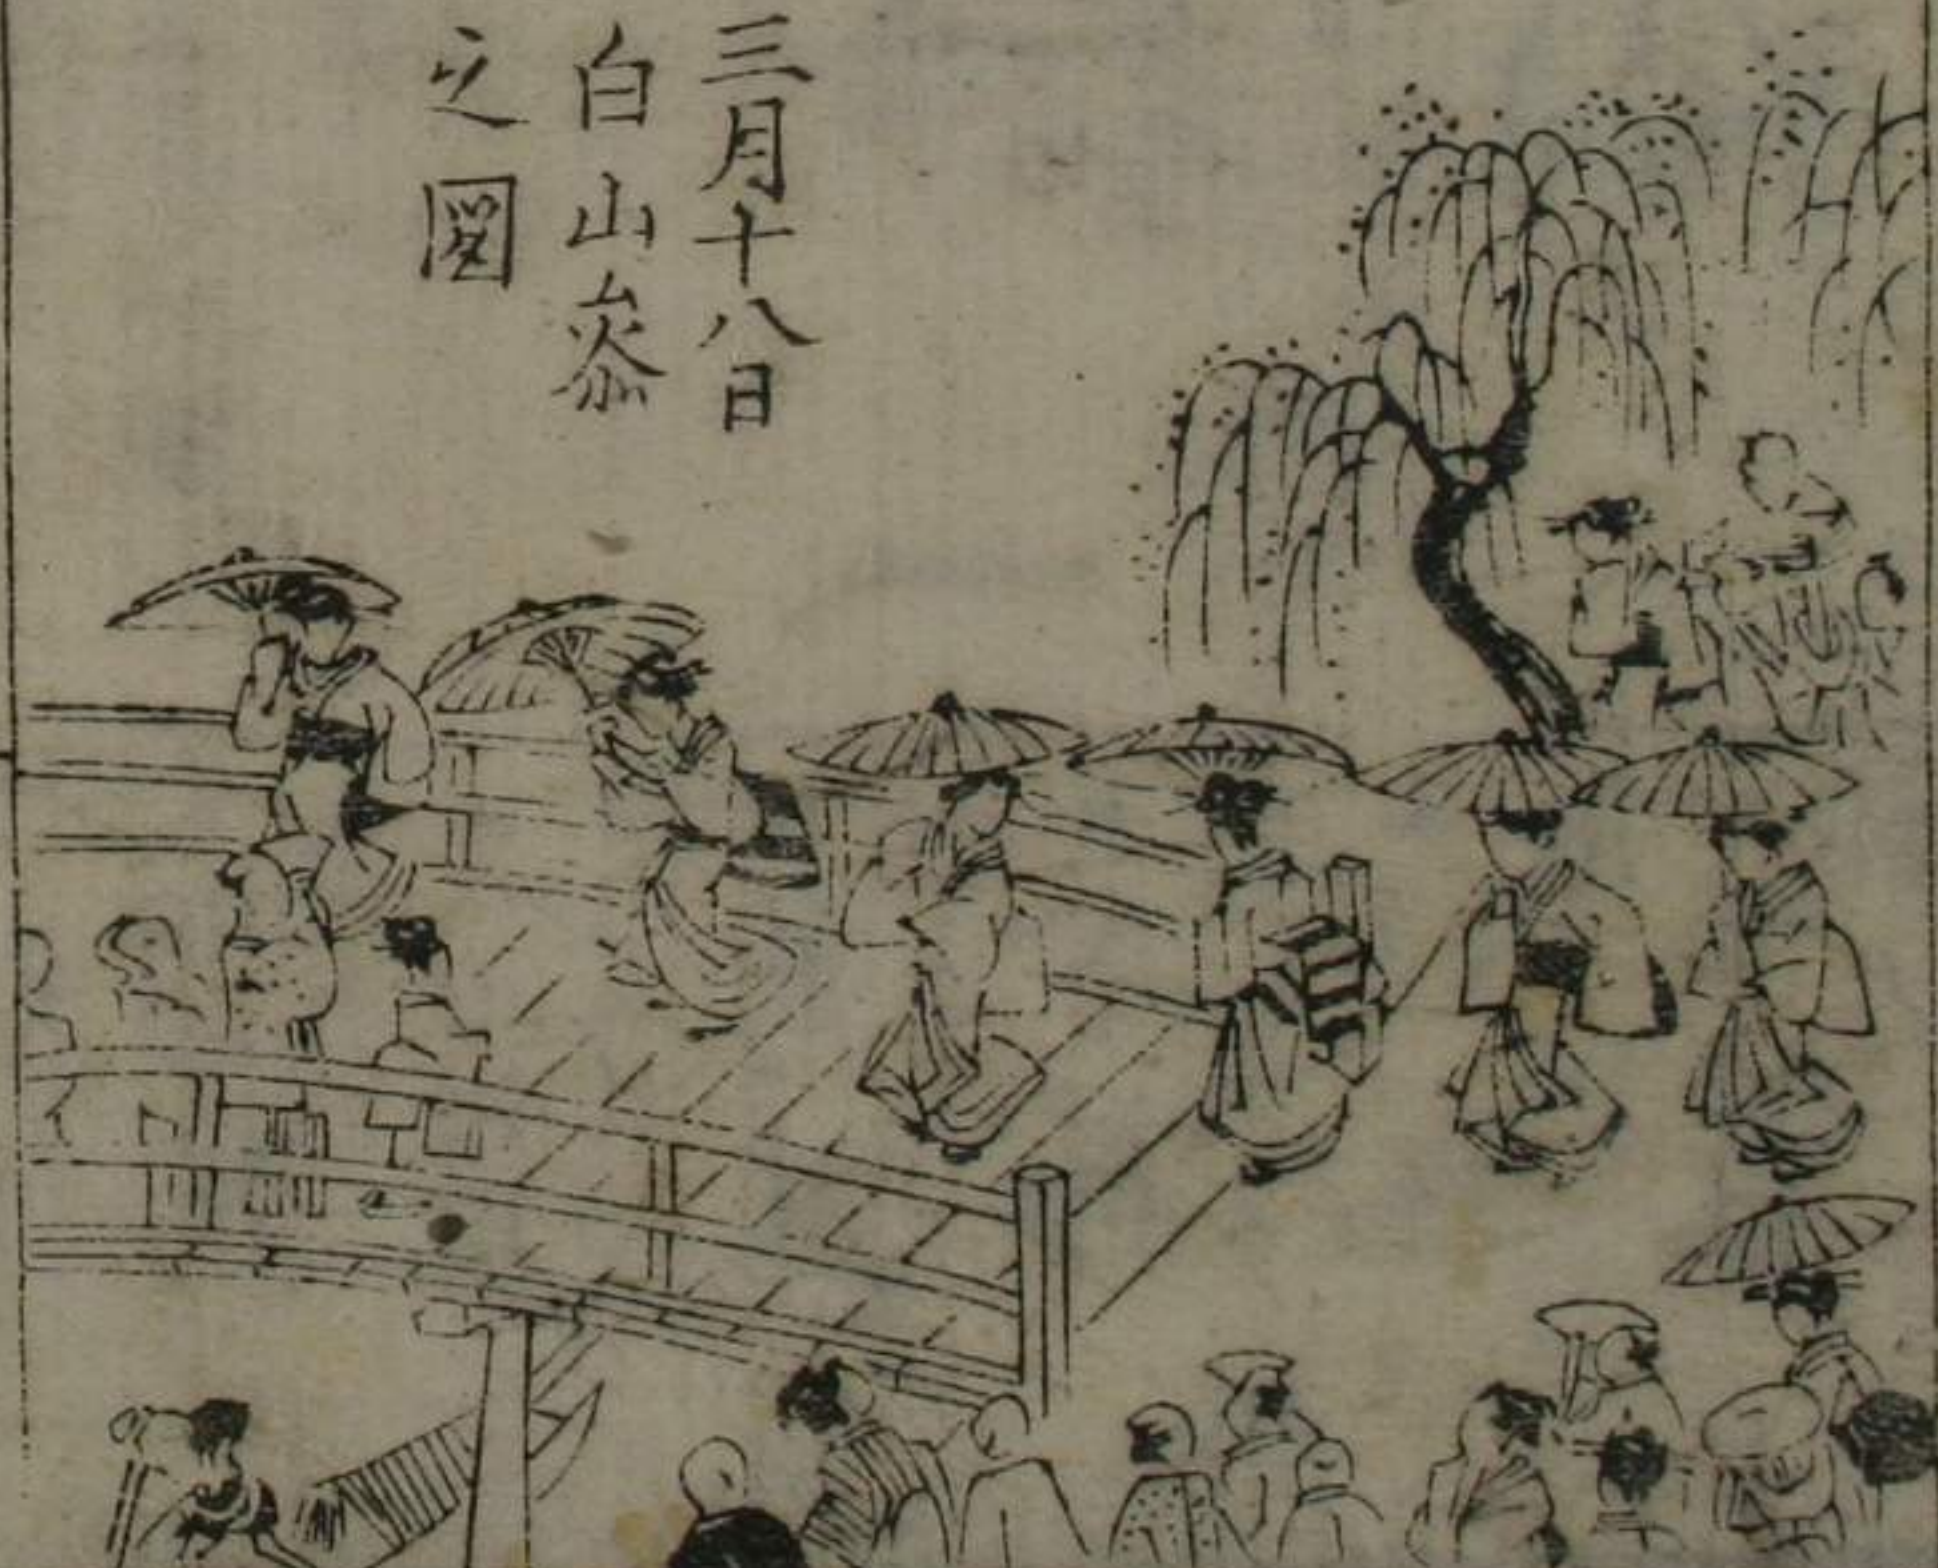 三月十八日
白山参
之圖